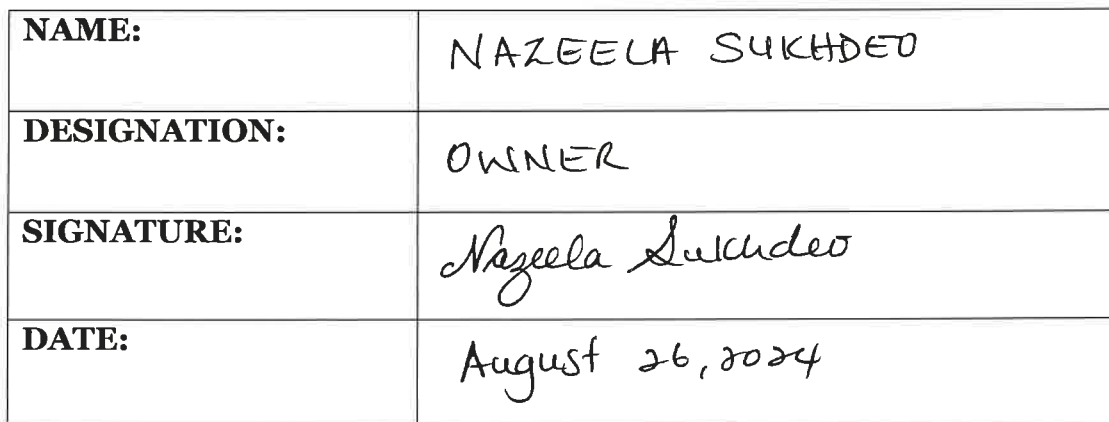 NAME: NAZEELA SUKHDEO
DESIGNATION: OWNER
SIGNATURE: Nazeela Sukhdeo
DATE: August 26, 2024